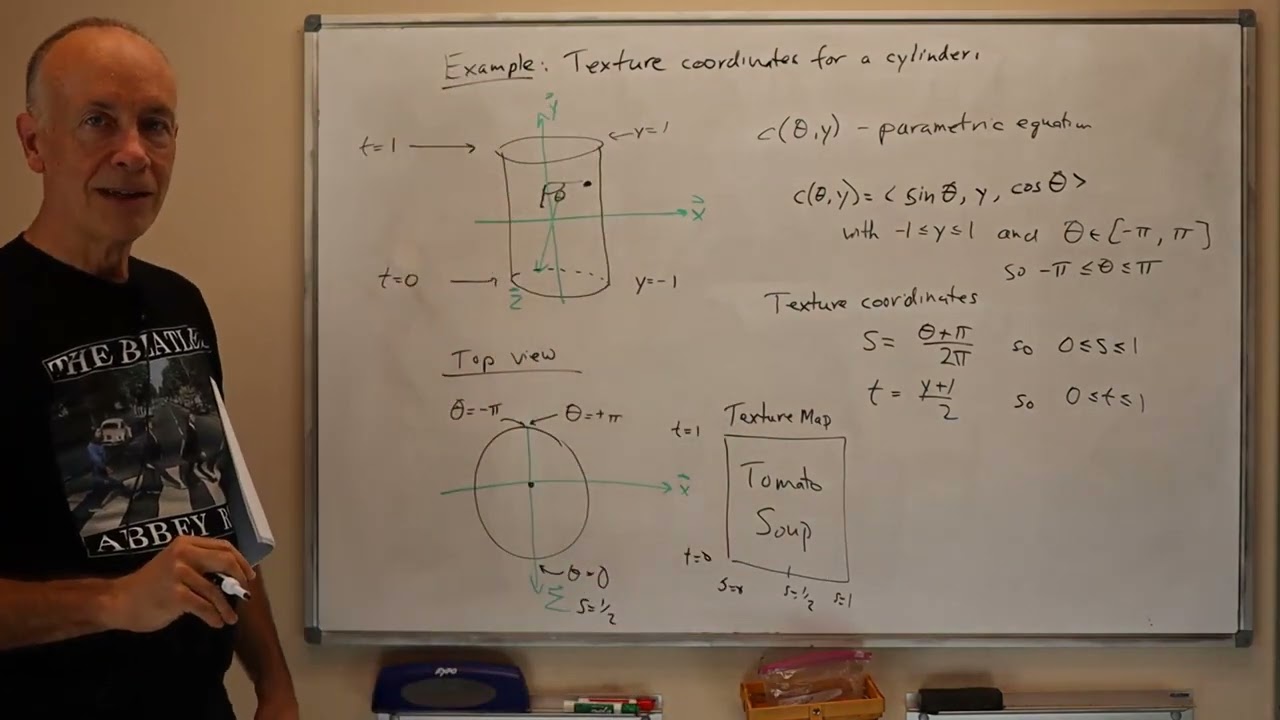 Example: Texture coordinates for a cylinder.
y
t=1
y=1
θ
x
t=0
y=-1
z
c(θ,y) - parametric equation
c(θ,y) = < sin θ, y, cos θ >
with -1 ≤ y ≤ 1 and θ ∈ [-π, π]
so -π ≤ θ ≤ π
Texture coordinates
s = θ+π / 2π so 0 ≤ s ≤ 1
t = y+1 / 2 so 0 ≤ t ≤ 1
Top view
θ=-π
θ=+π
x
θ=0
z
s=1/2
Texture Map
t=1
Tomato
Soup
t=0
s=1/2
s=1
THE BEATLES
ABBEY R
EXPO